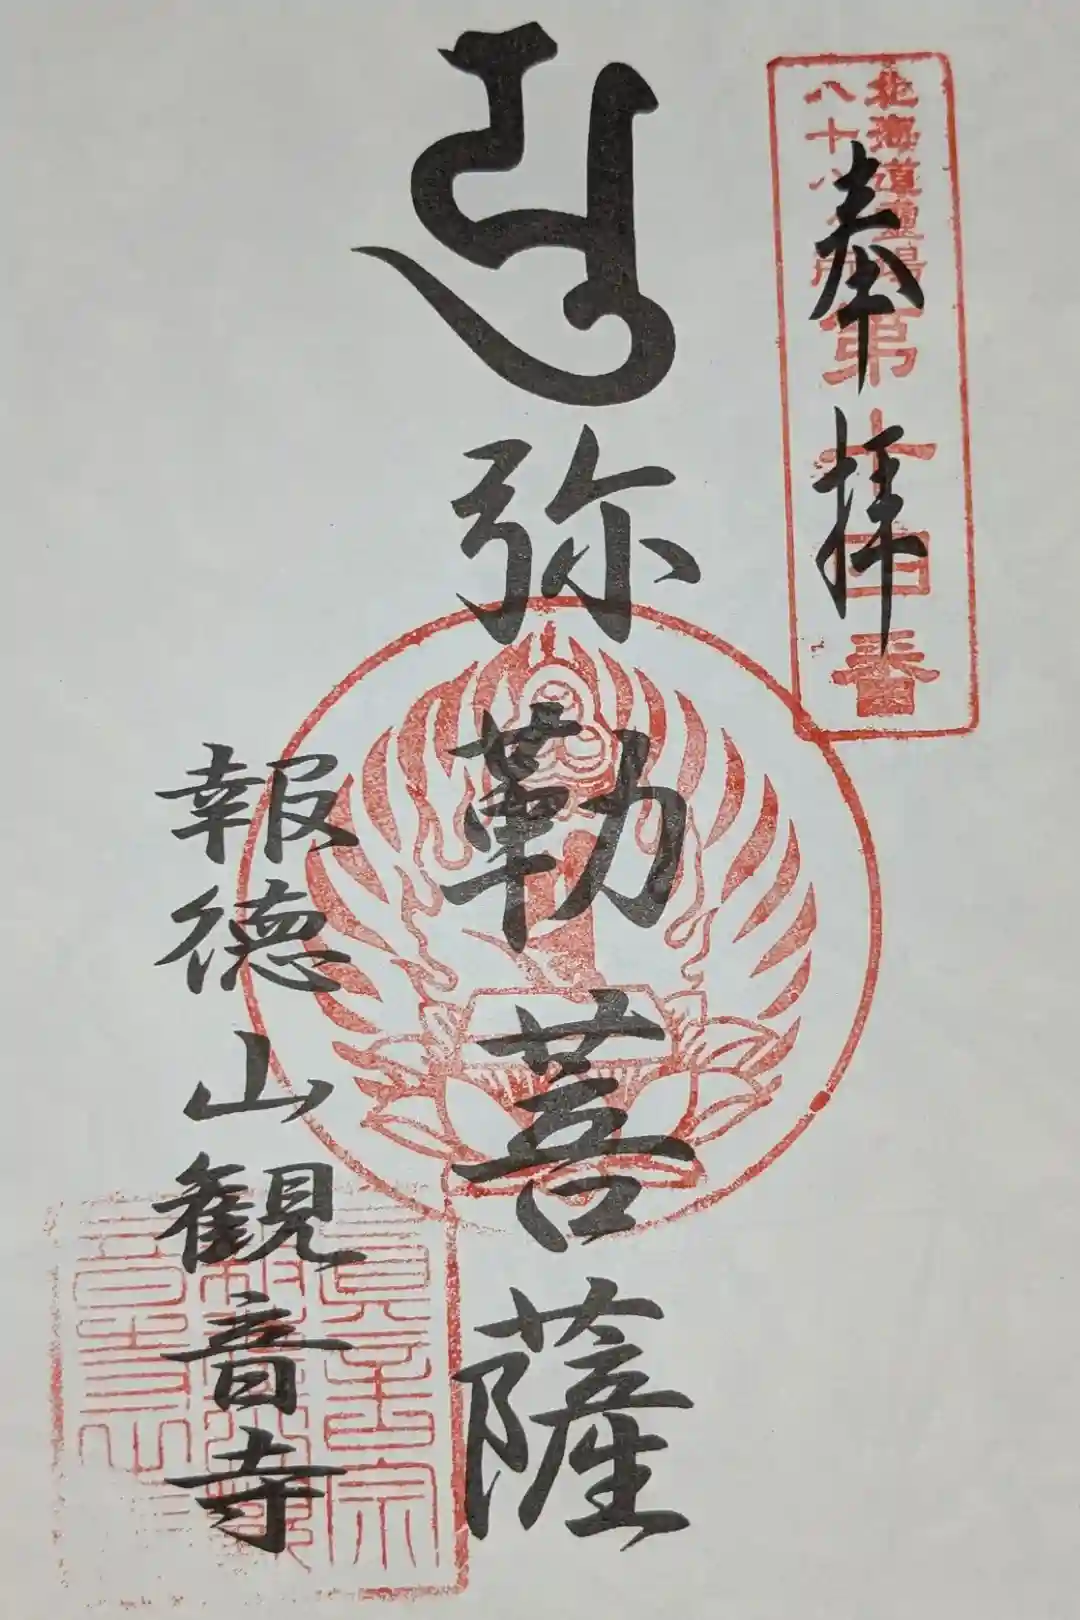 北海道霊場
八十八ヶ所
第十四番
奉拝
弥勒菩薩
報徳山観音寺
眞言宗